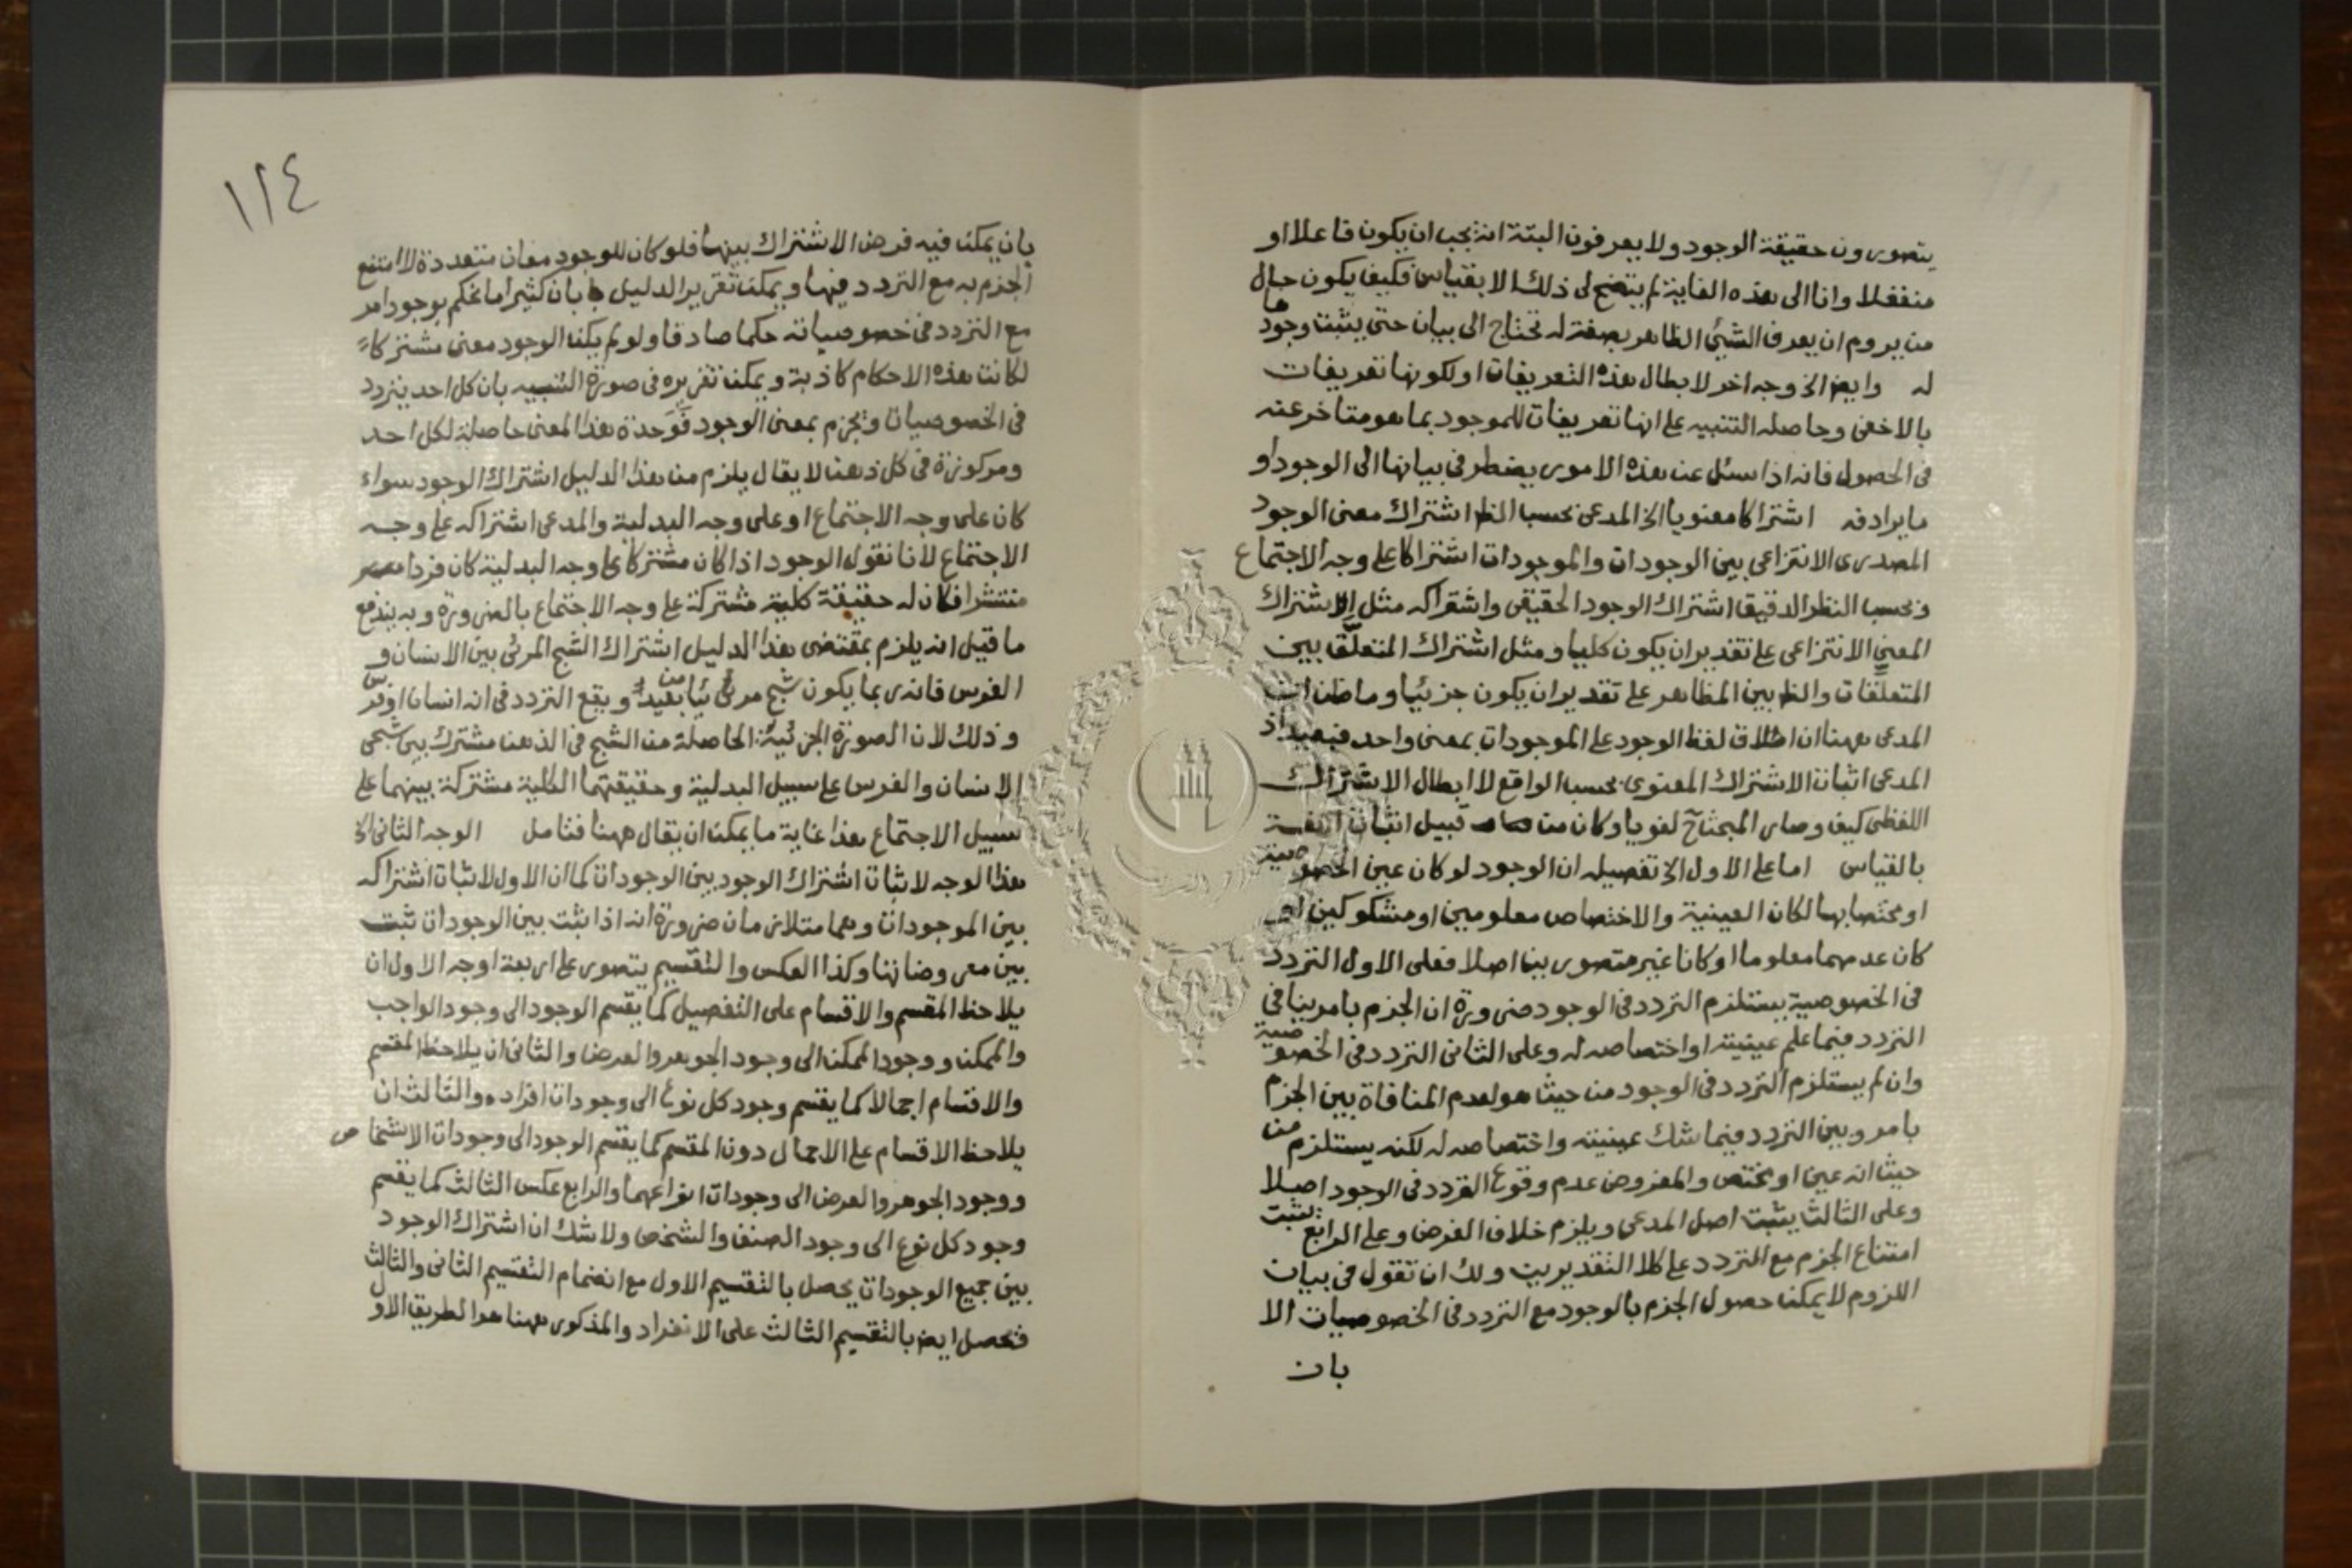 يتصورون حقيقة الوجود ولا يعرفون البتة انه يجب ان يكون فاعلا او
منفعلا وانا الى هذه الغاية لم يتضح لى ذلك الا بقياس فكيف يكون حال
من يروم ان يعرف الشيئ الظاهر بصفة له تحتاج الى بيان حتى يثبت وجودها
له وايض الخ وجه اخر لابطال هذه التعريفات او لكونها تعريفات
بالاخفى وحاصله التنبيه على انها تعريفات للموجود بما هو متاخر عنه
فى الحصول فانه اذا سئل عن هذه الامور يضطر فى بيانها الى الوجود او
ما يرادفه اشتراكا معنويا الخ المدعى بحسب الظ اشتراك معنى الوجود
المصدرى الانتزاعى بين الوجودات والموجودات اشتراكا على وجه الاجتماع
وبحسب النظر الدقيق اشتراك الوجود الحقيقى واشتراكه مثل الاشتراك
المعنى الانتزاعى على تقدير ان يكون كليا ومثل اشتراك المتعلق بين
المتعلقات والظ بين المظاهر على تقدير ان يكون جزئيا وما ظن ان
المدعى ههنا ان اطلاق لفظ الوجود على الموجودات بمعنى واحد فبعيد اذ
المدعى اثبات الاشتراك المعنوى بحسب الواقع لا ابطال الاشتراك
اللفظى كيف وصار المبحث ح لغويا وكان من قبيل اثبات اللغة
بالقياس اما على الاول الخ تفصيله ان الوجود لو كان عين الخصوصية
او مختصا بها لكان العينية والاختصاص معلومين او مشكوكين او
كان عدمهما معلوما او كانا غير متصورين اصلا فعلى الاول التردد
فى الخصوصية يستلزم التردد فى الوجود ضرورة ان الجزم بامر ينافى
التردد فيما علم عينيته او اختصاصه له وعلى الثانى التردد فى الخصوصية
وان لم يستلزم التردد فى الوجود من حيث هو لعدم المنافاة بين الجزم
بامر وبين التردد فيما شك عينيته واختصاصه له لكنه يستلزم من
حيث انه عين او مختص والمفروض عدم وقوع التردد فى الوجود اصلا
وعلى الثالث يثبت اصل المدعى ويلزم خلاف الفرض وعلى الرابع يثبت
امتناع الجزم مع التردد على كلا التقديرين ولك ان تقول فى بيان
اللزوم لا يمكن حصول الجزم بالوجود مع التردد فى الخصوصيات الا
بان
١٢٤
بان يمكن فيه فرض الاشتراك بينها فلو كان للوجود معان متعددة لامتنع
الجزم به مع التردد فيها ويمكن تقرير الدليل بان كثيرا ما نحكم بوجود امر
مع التردد فى خصوصياته حكما صادقا ولو لم يكن الوجود معنى مشتركا
لكانت هذه الاحكام كاذبة ويمكن تقريره فى صورة التنبيه بان كل احد يتردد
فى الخصوصيات ويجزم بمعنى الوجود فوحدة هذا المعنى حاصلة لكل احد
ومركوزة فى كل ذهن لا يقال يلزم من هذا الدليل اشتراك الوجود سواء
كان على وجه الاجتماع او على وجه البدلية والمدعى اشتراكه على وجه
الاجتماع لانا نقول الوجود اذا كان مشتركا على وجه البدلية كان فردا
منتشرا فكان له حقيقة كلية مشتركة على وجه الاجتماع بالضرورة وبه يندفع
ما قيل انه يلزم بمقتضى هذا الدليل اشتراك الشبح المرئى بين الانسان و
الفرس فانه ربما يكون شبح مرئيا من بعيد ويقع التردد فى انه انسان او فرس
وذلك لان الصورة الجزئية الحاصلة من الشبح فى الذهن مشترك بين شبحى
الانسان والفرس على سبيل البدلية وحقيقتهما الكلية مشتركة بينهما على
سبيل الاجتماع هذا غاية ما يمكن ان يقال ههنا فتامل الوجه الثانى الخ
هذا الوجه لاثبات اشتراك الوجود بين الوجودات كما ان الاول لاثبات اشتراكه
بين الموجودات وهما متلازمان ضرورة انه اذا ثبت بين الوجودات ثبت
بين معروضاتها وكذا العكس والتقسيم يتصور على اربعة اوجه الاول ان
يلاحظ المقسم والاقسام على التفصيل كما يقسم الوجود الى وجود الواجب
والممكن ووجود الممكن الى وجود الجوهر والعرض والثانى ان يلاحظ المقسم
والاقسام اجمالا كما يقسم وجود كل نوع الى وجودات افراده والثالث ان
يلاحظ الاقسام على الاجمال دون المقسم كما يقسم الوجود الى وجودات الاشخاص
ووجود الجوهر والعرض الى وجودات انواعهما والرابع عكس الثالث كما يقسم
وجود كل نوع الى وجود الصنف والشخص ولا شك ان اشتراك الوجود
بين جميع الوجودات يحصل بالتقسيم الاول مع انضمام التقسيم الثانى والثالث
فحصل ايض بالتقسيم الثالث على الانفراد والمذكور ههنا هو الطريق الاول